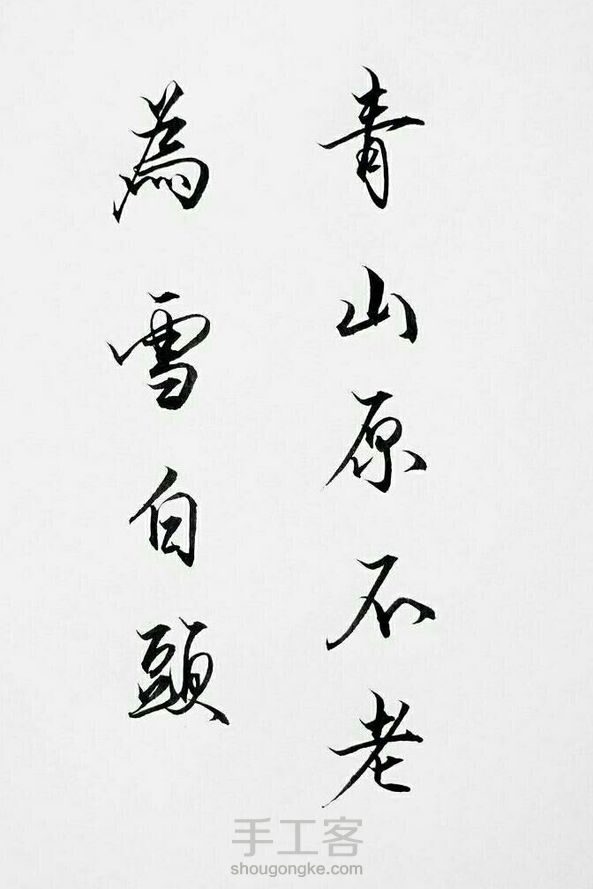 青山原不老
為雪白頭
手工客
shougongke.com